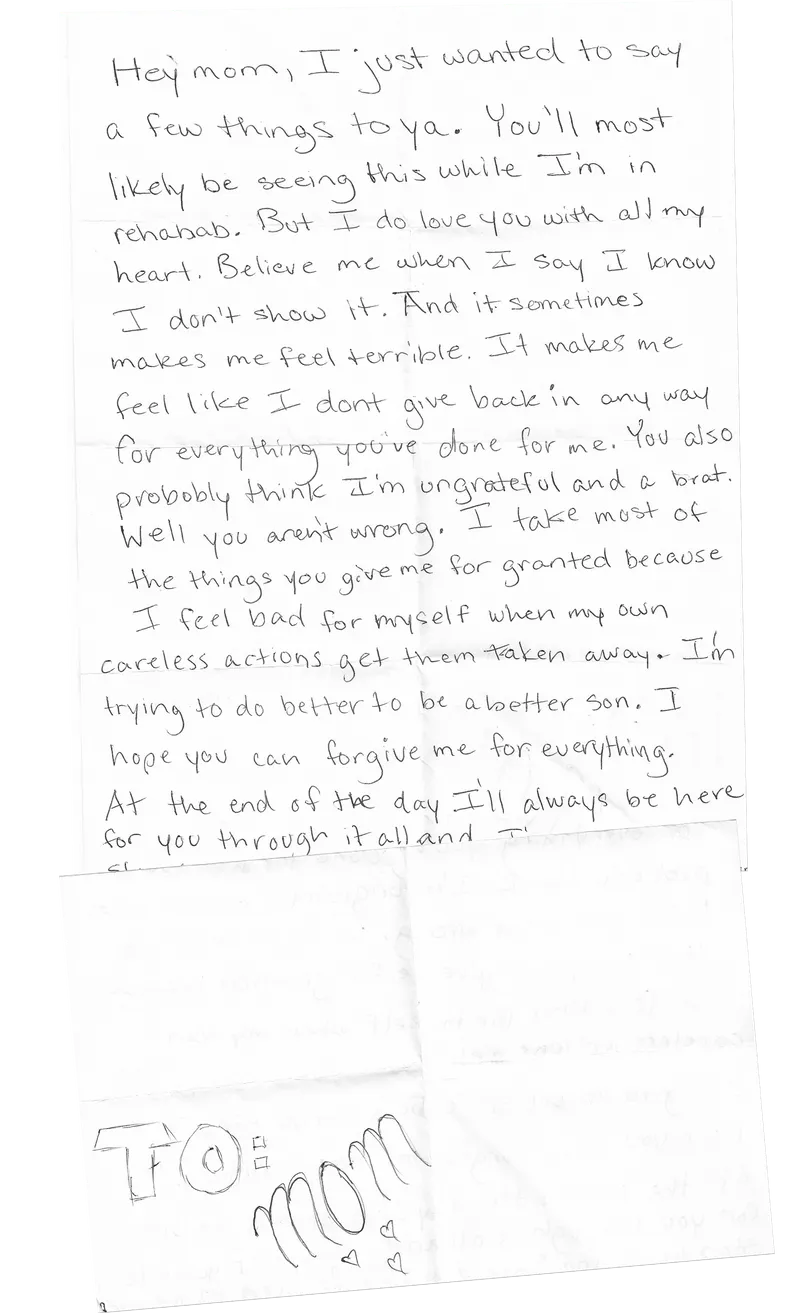 Hey mom, I just wanted to say
a few things to ya. You'll most
likely be seeing this while I'm in
rehabab. But I do love you with all my
heart. Believe me when I say I know
I don't show it. And it sometimes
makes me feel terrible. It makes me
feel like I dont give back in any way
for everything you've done for me. You also
probobly think I'm ungrateful and a brat.
Well you aren't wrong. I take most of
the things you give me for granted because
I feel bad for myself when my own
careless actions get them taken away. I'm
trying to do better to be a better son. I
hope you can forgive me for everything.
At the end of the day I'll always be here
for you through it all and
TO:
MOM